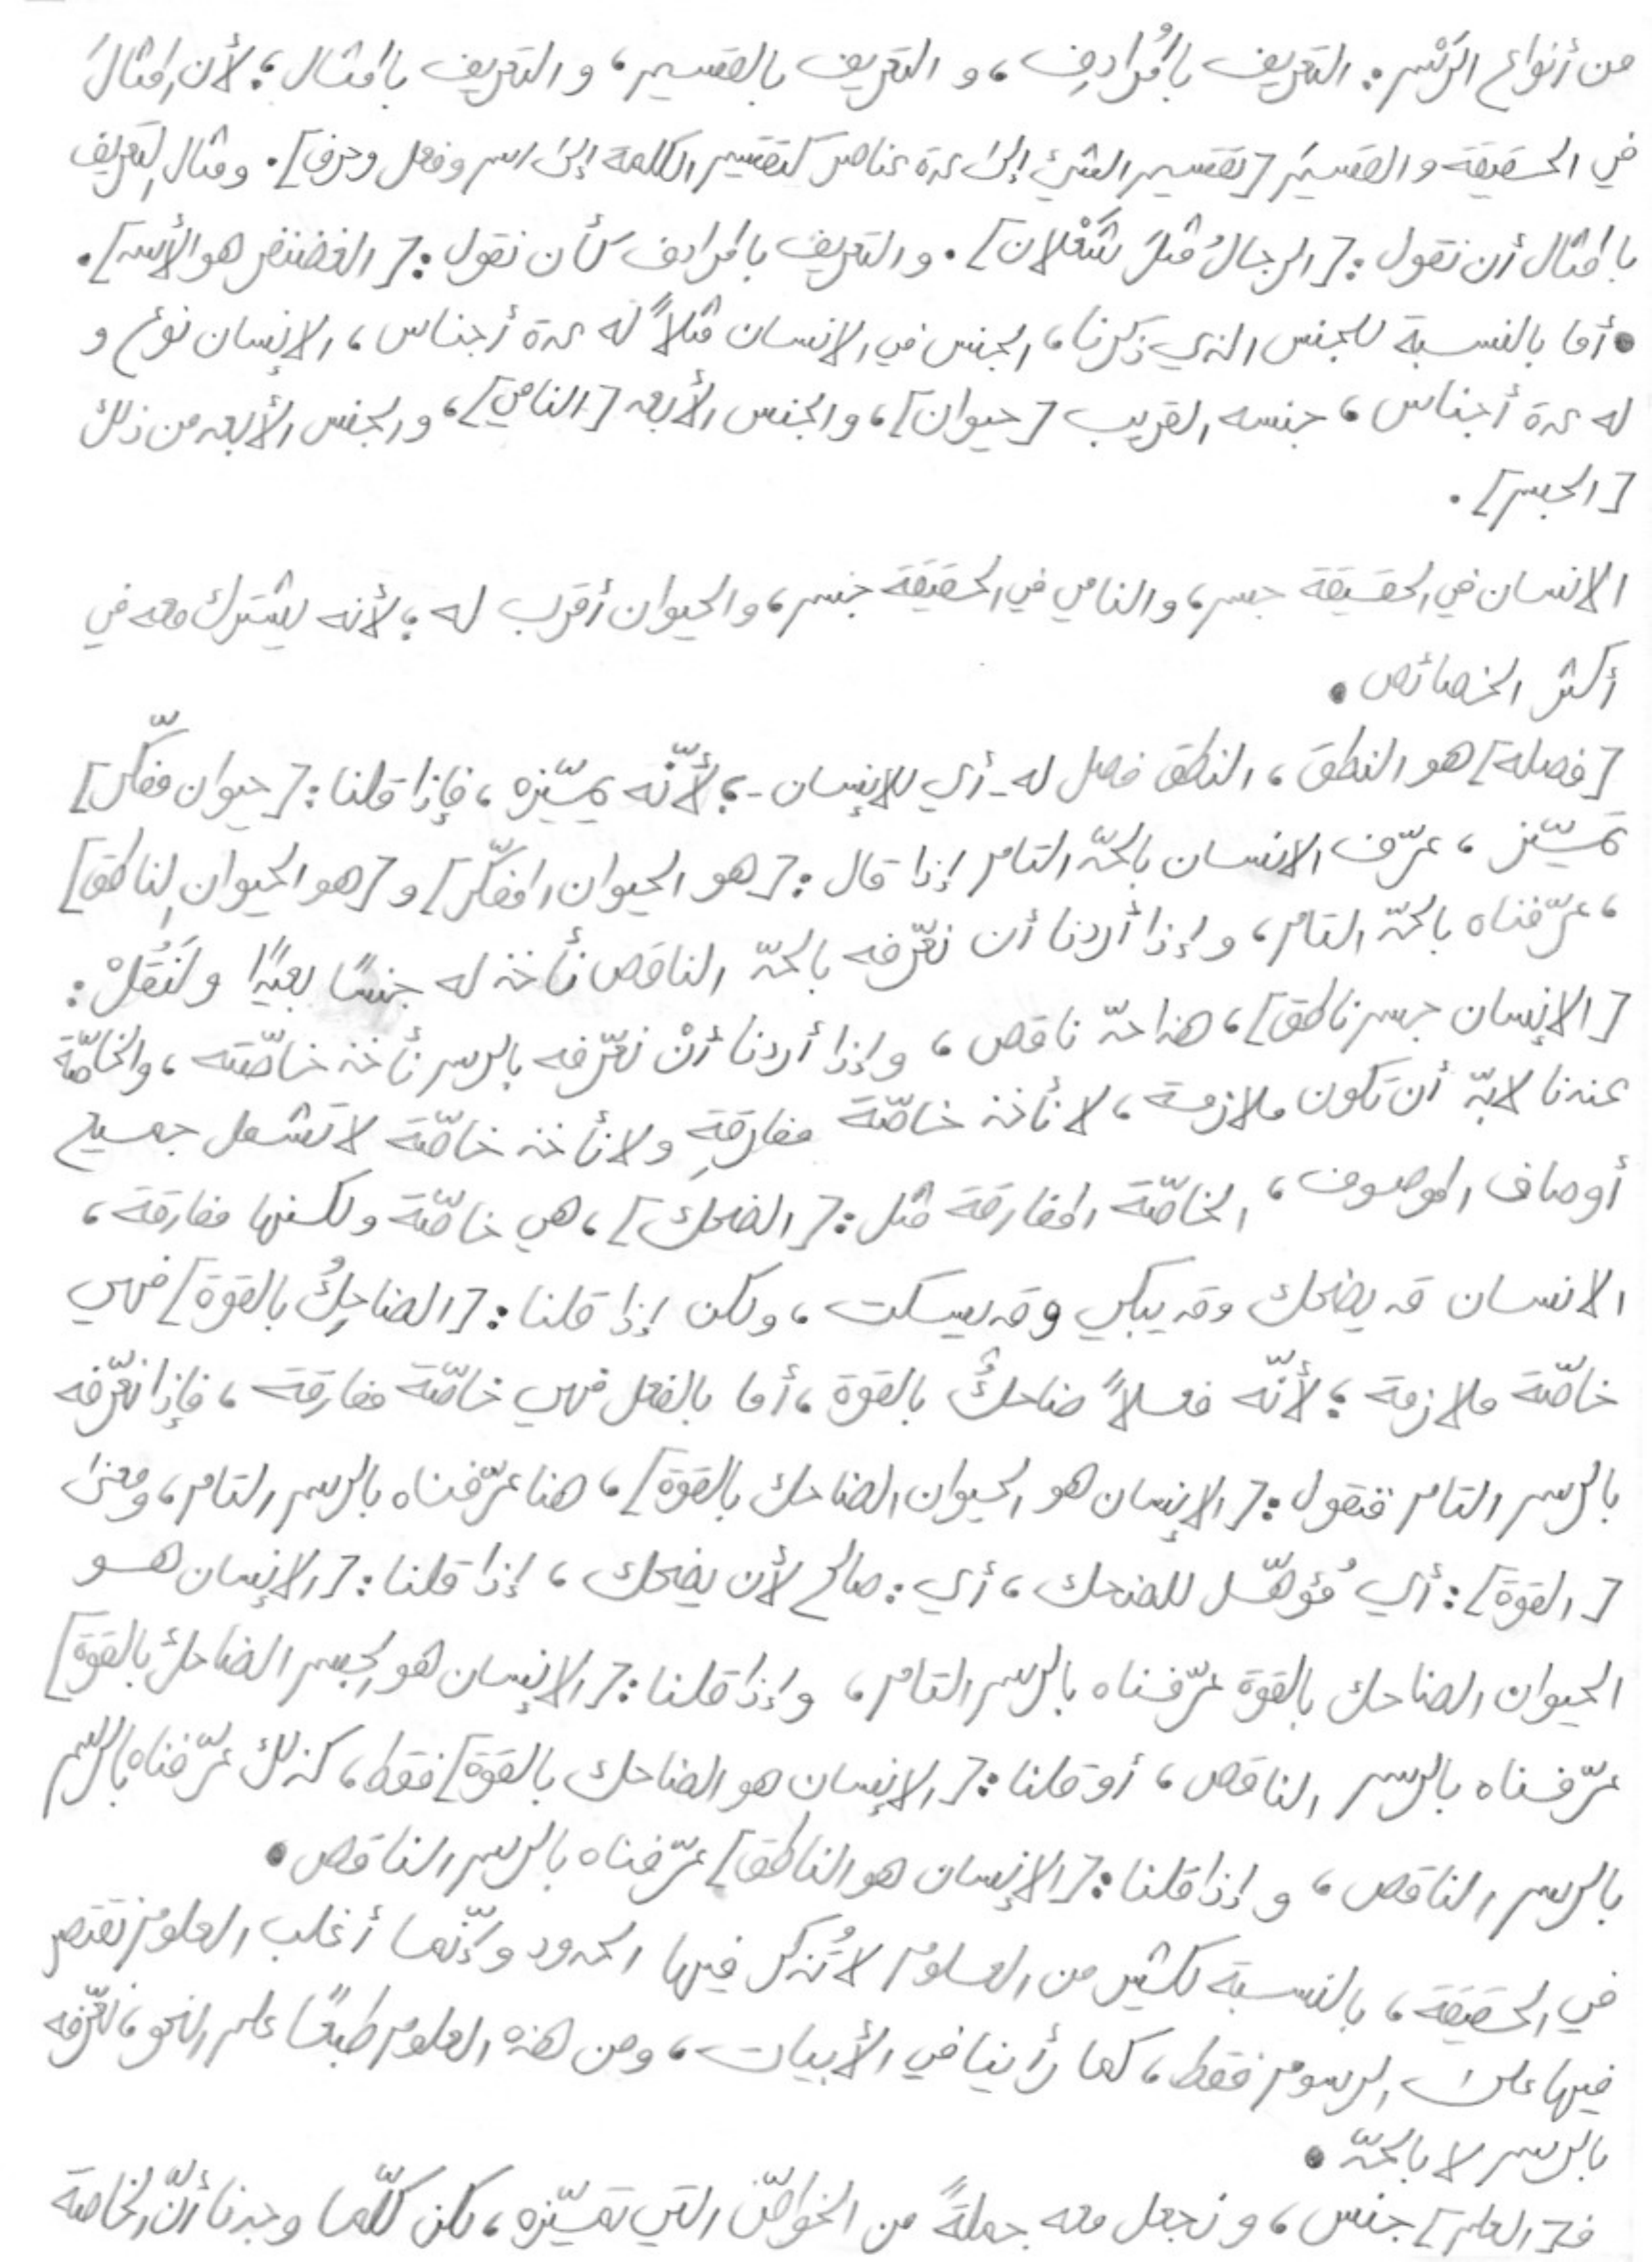 من أنواع الرَّسْم: التعريف بالمُرادِف، و التعريف بالتقسيم، و التعريف بالمثال؛ لأن المثالَ
في الحقيقة و التقسيمَ [تقسيم الشيء إلى عدة عناصر كتقسيم الكلمة إلى اسم وفعل وحرف]. ومثال التعريف
بالمثال أن نقول: [الرجالُ مثلُ شَعْلان]. و التعريف بالمرادف كأن نقول: [الغضنفر هو الأسد].
• أما بالنسبة للجنس الذي ذكرنا، الجنس في الانسان مثلاً له عدة أجناس، الإنسان نوع و
له عدة أجناس، جنسه القريب [حيوان]، والجنس الأبعد [النامي]، والجنس الأبعد من ذلك
[الجسم].
الانسان في الحقيقة جسم، والنامي في الحقيقة جسم، والحيوان أقرب له؛ لأنه يشترك معه في
أكثر الخصائص.
[فصله] هو النطق، النطق فصل له - أي للإنسان -؛ لأنّه يميّزه، فإذا قلنا: [حيوان مفكّر]
تميّز، عرّف الانسان بالحدّ التام إذا قال: [هو الحيوان المفكّر] و [هو الحيوان الناطق]
، عرّفناه بالحدّ التام، وإذا أردنا أن نعرّفه بالحدّ الناقص نأخذ له جنسًا بعيدًا ولنَقُلْ:
[الإنسان جسم ناطق]، هذا حدّ ناقص، وإذا أردنا أنْ نعرّفه بالرسم نأخذ خاصّته، والخاصّة
عندنا لابدّ أن تكون ملازمة، لا نأخذ خاصّة مفارقةٍ ولا نأخذ خاصّة لا تشمل جميع
أوصاف الموصوف، الخاصّة المفارقة مثل: [الضحك]، هي خاصّة ولكنها مفارقة،
الانسان قد يضحك وقد يبكي وقد يسكت، ولكن إذا قلنا: [الضاحِكُ بالقوة] فهي
خاصّة ملازمة؛ لأنّه فعلاً ضاحكٌ بالقوة، أما بالفعل فهي خاصّة مفارقة، فإذا نعرّفه
بالرسم التام فنقول: [الإنسان هو الحيوان الضاحك بالقوة]، هنا عرّفناه بالرسم التام، ومعنى
[القوة]: أي مُؤهّل للضحك، أي: صالح لأن يضحك، إذا قلنا: [الإنسان هو
الحيوان الضاحك بالقوة عرّفناه بالرسم التام، وإذا قلنا: [الإنسان هو الجسم الضاحك بالقوة]
عرّفناه بالرسم الناقص، أو قلنا: [الإنسان هو الضاحك بالقوة] فقط، كذلك عرّفناه بالرسم
بالرسم الناقص، وإذا قلنا: [الإنسان هو الناطق] عرّفناه بالرسم الناقص.
في الحقيقة، بالنسبة لكثير من العلوم لا تُذكر فيها الحدود وإنّما أغلب العلوم نقتصر
فيها على الرسوم فقط، كما رأينا في الأبيات، ومن هذه العلوم طبعًا علم النحو، نعرّفه
بالرسم لا بالحدّ.
فـ[العلم] جنس، ونجعل معه جملةً من الخواصّ التي تميّزه، لكن كلّما وجدنا أنّ الخاصة